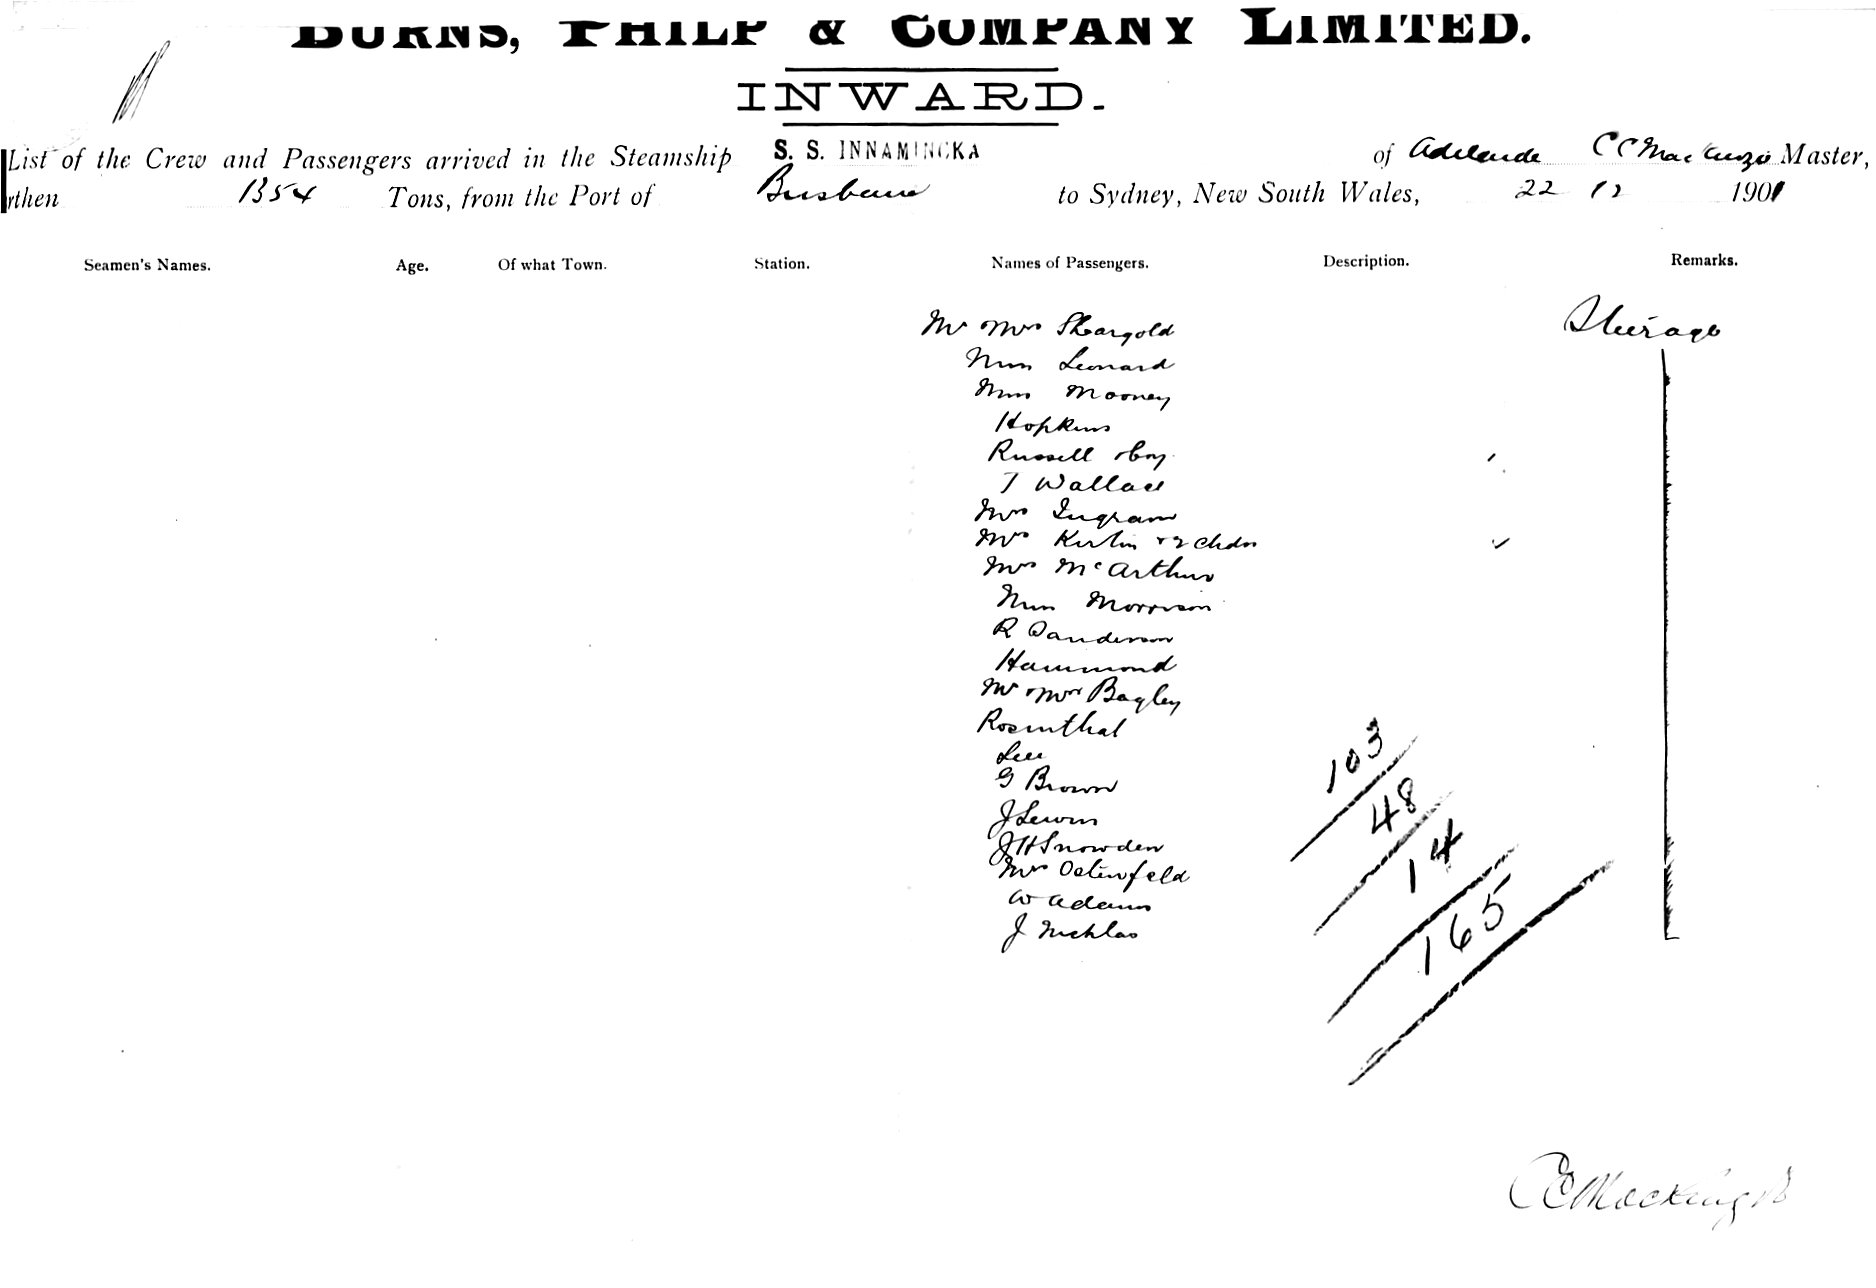 BURNS, PHILP & COMPANY LIMITED.
INWARD.
List of the Crew and Passengers arrived in the Steamship S. S. INNAMINCKA of Adelaide C C Mackenzie Master,
rthen 1354 Tons, from the Port of Brisbane to Sydney, New South Wales, 22 12 1901
Seamen's Names. Age. Of what Town. Station. Names of Passengers. Description. Remarks.
Mr & Mrs Sheargold Steerage
Miss Leonard
Miss Mooney
Hopkins
Russell & boy
T Wallace
Mrs Ingram
Mrs Kirlin & 2 chdn
Mrs McArthur
Miss Morrison
R Sanderson
Hammond
Mr & Mrs Bagley
Rosenthal
Lee
G Brown
J Lewis
J H Snowden
Mrs Ostenfeld
W Adams
J Nicklas
103
48
14
165
C C Mackenzie